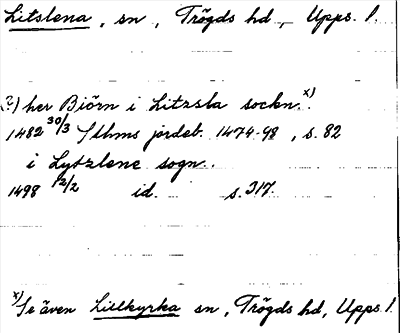 Litslena, sn, Trögds hd, Upps. l.
(?) her Biörn i Litzsla sockn. x)
1482 30/3 Sthms jordeb. 1474-98, s. 82
i Lytzlene sogn..
1498 12/2 id. s. 317.
x) Se även Lillkyrka sn, Trögds hd, Upps. l.